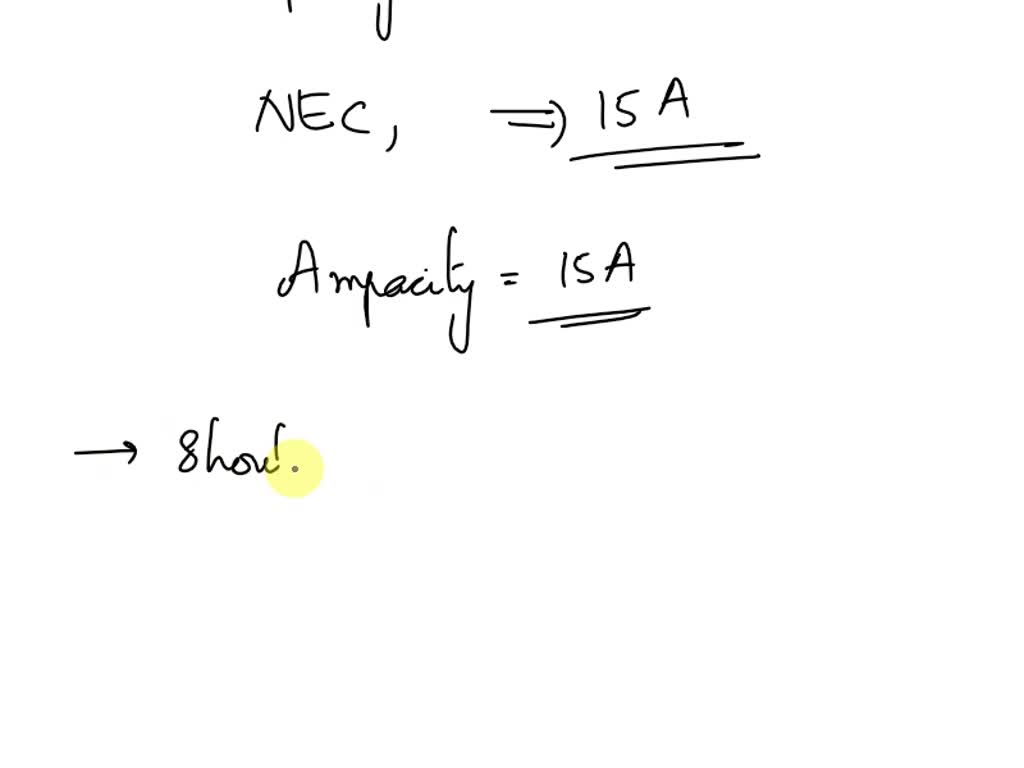 NEC, ⇒ 15 A
Ampacity = 15A
→ Shoul